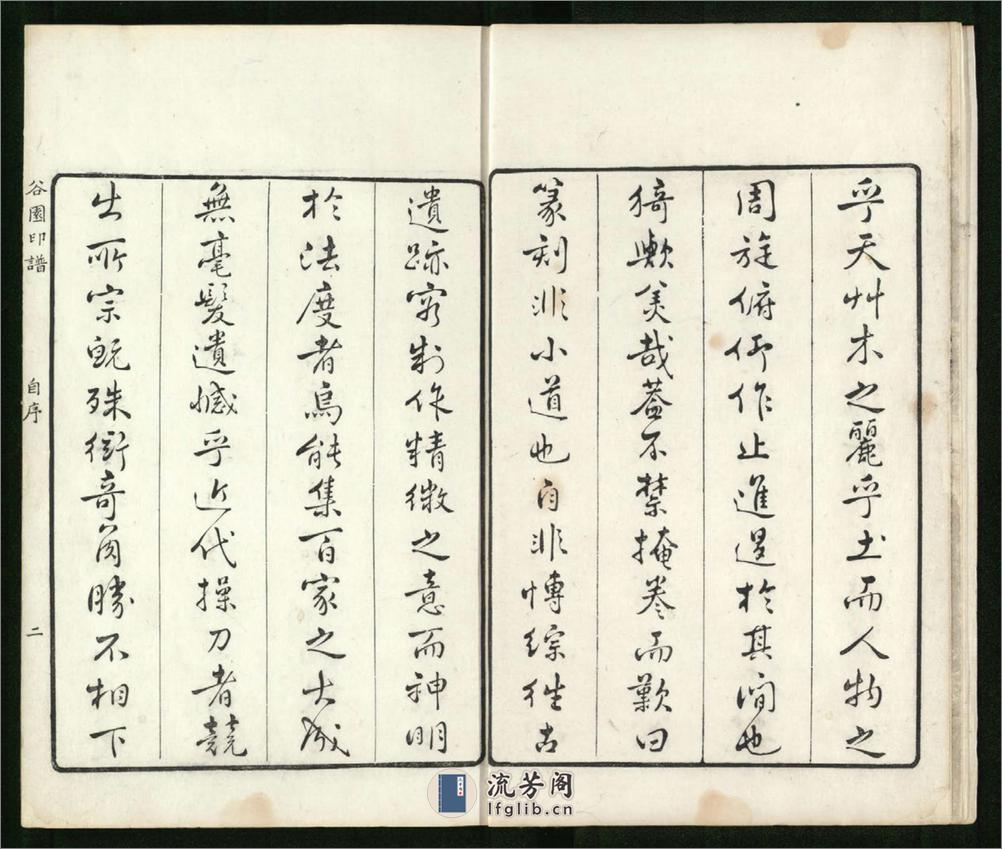 乎天艸木之麗乎土而人物之
周旋俯仰作止進退於其間也
猗歟美哉蓋不禁掩卷而歎曰
篆刻非小道也自非博綜往古
遺跡窮制作精微之意而神明
於法度者烏能集百家之大成
無毫髮遺憾乎近代操刀者競
出所宗既殊衒奇角勝不相下
谷園印譜
自序
二
流芳阁
lfglib.cn